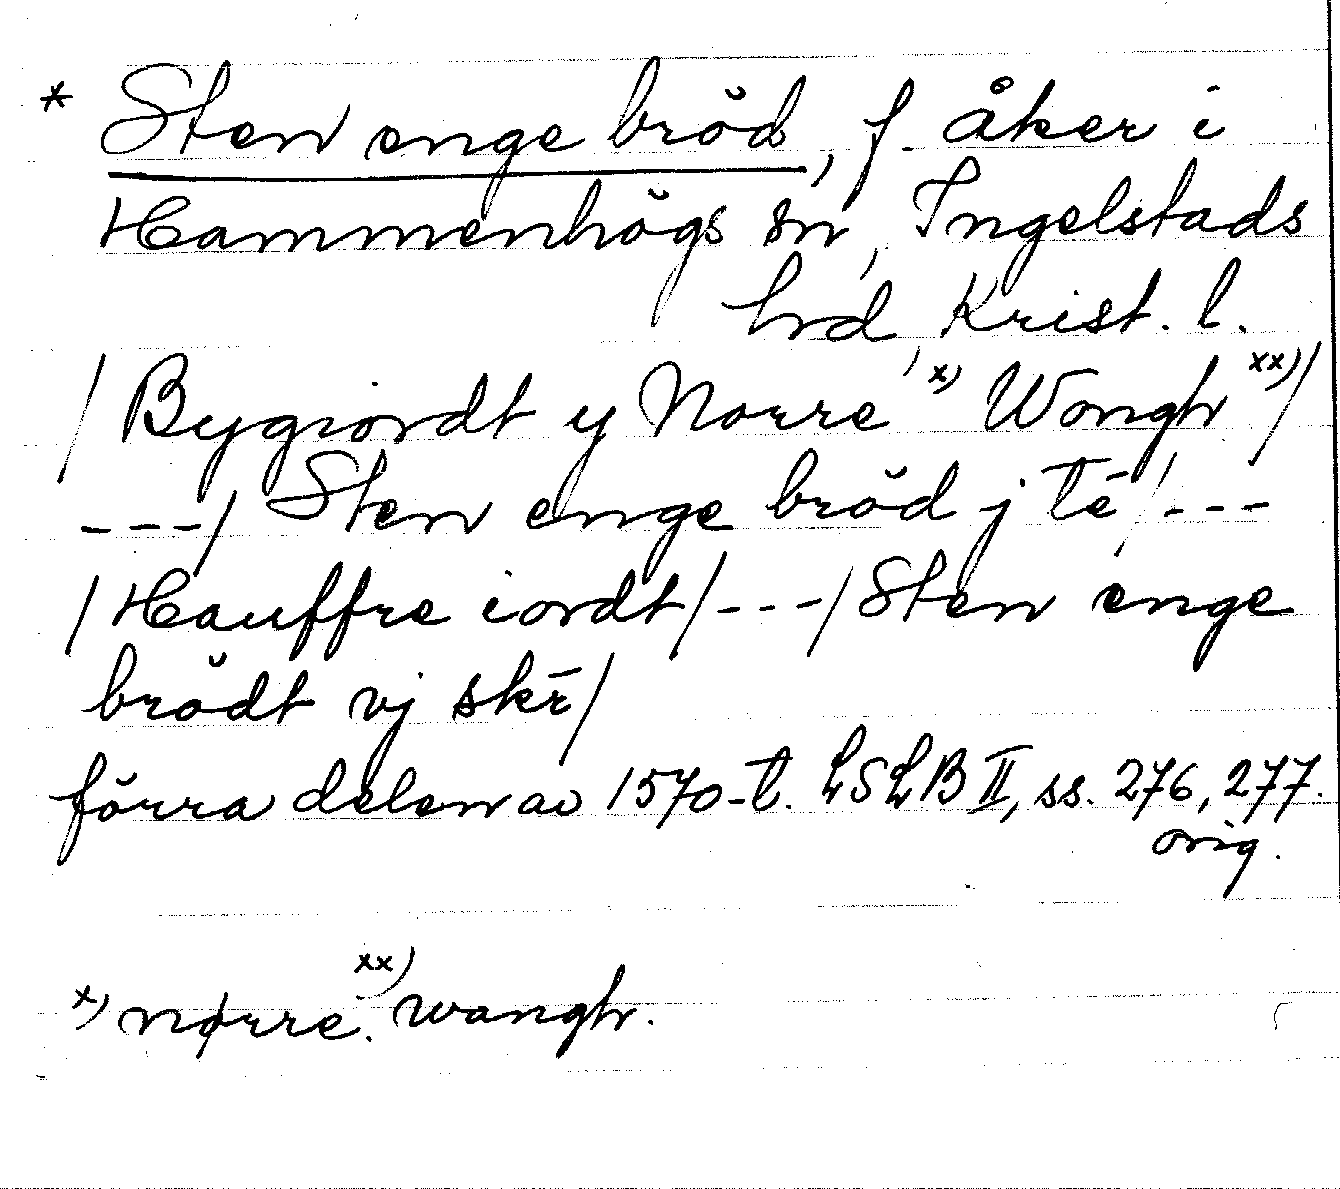 * Sten enge brŏd, f. åker i
Hammenhŏgs sn, Ingelstads
hrd, Krist. l.
/Bygiordt y Norre x) Wongh xx)/
---/ Sten enge brŏd j té /---
/Hauffre iordt/---/Sten enge
brŏdt vj skr̄/
fŏrra delen av 1570-t. LSLB II, ss. 276, 277.
orig.
x) nørre. xx) wangh.